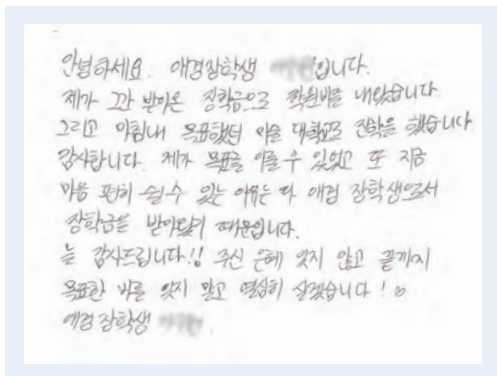 안녕하세요. 애경장학생 입니다.
제가 그간 받아온 장학금으로 학원비를 내왔습니다.
그리고 마침내 목표했던 서울 대학교로 진학을 했습니다
감사합니다. 제가 목표를 이룰 수 있었고 또 지금
마음 편히 쉴 수 있는 이유는 다 애경 장학생으로서
장학금을 받아왔기 때문입니다.
늘 감사드립니다!! 주신 은혜 잊지 않고 끝까지
목표한 바를 잊지 말고 열심히 살겠습니다!
애경 장학생